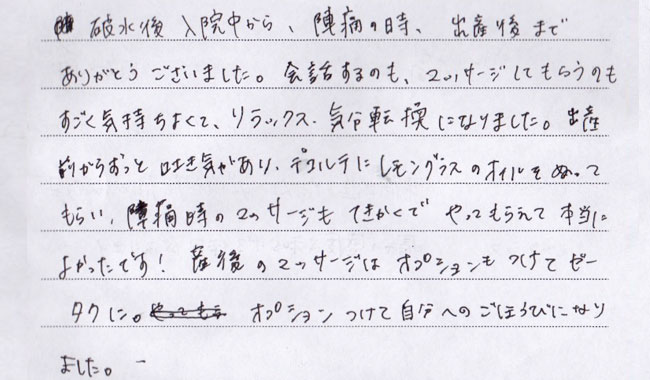 破水後入院中から、陣痛の時、出産後まで
ありがとうございました。会話するのも、マッサージしてもらうのも
すごく気持ちよくて、リラックス・気分転換になりました。出産
前からずっと吐き気があり、デコルテにレモングラスのオイルをぬって
もらい、陣痛時のマッサージもてきかくでやってもらえて本当に
よかったです！産後のマッサージはオプションもつけてゼー
タクに。オプションつけて自分へのごほうびになり
ました。